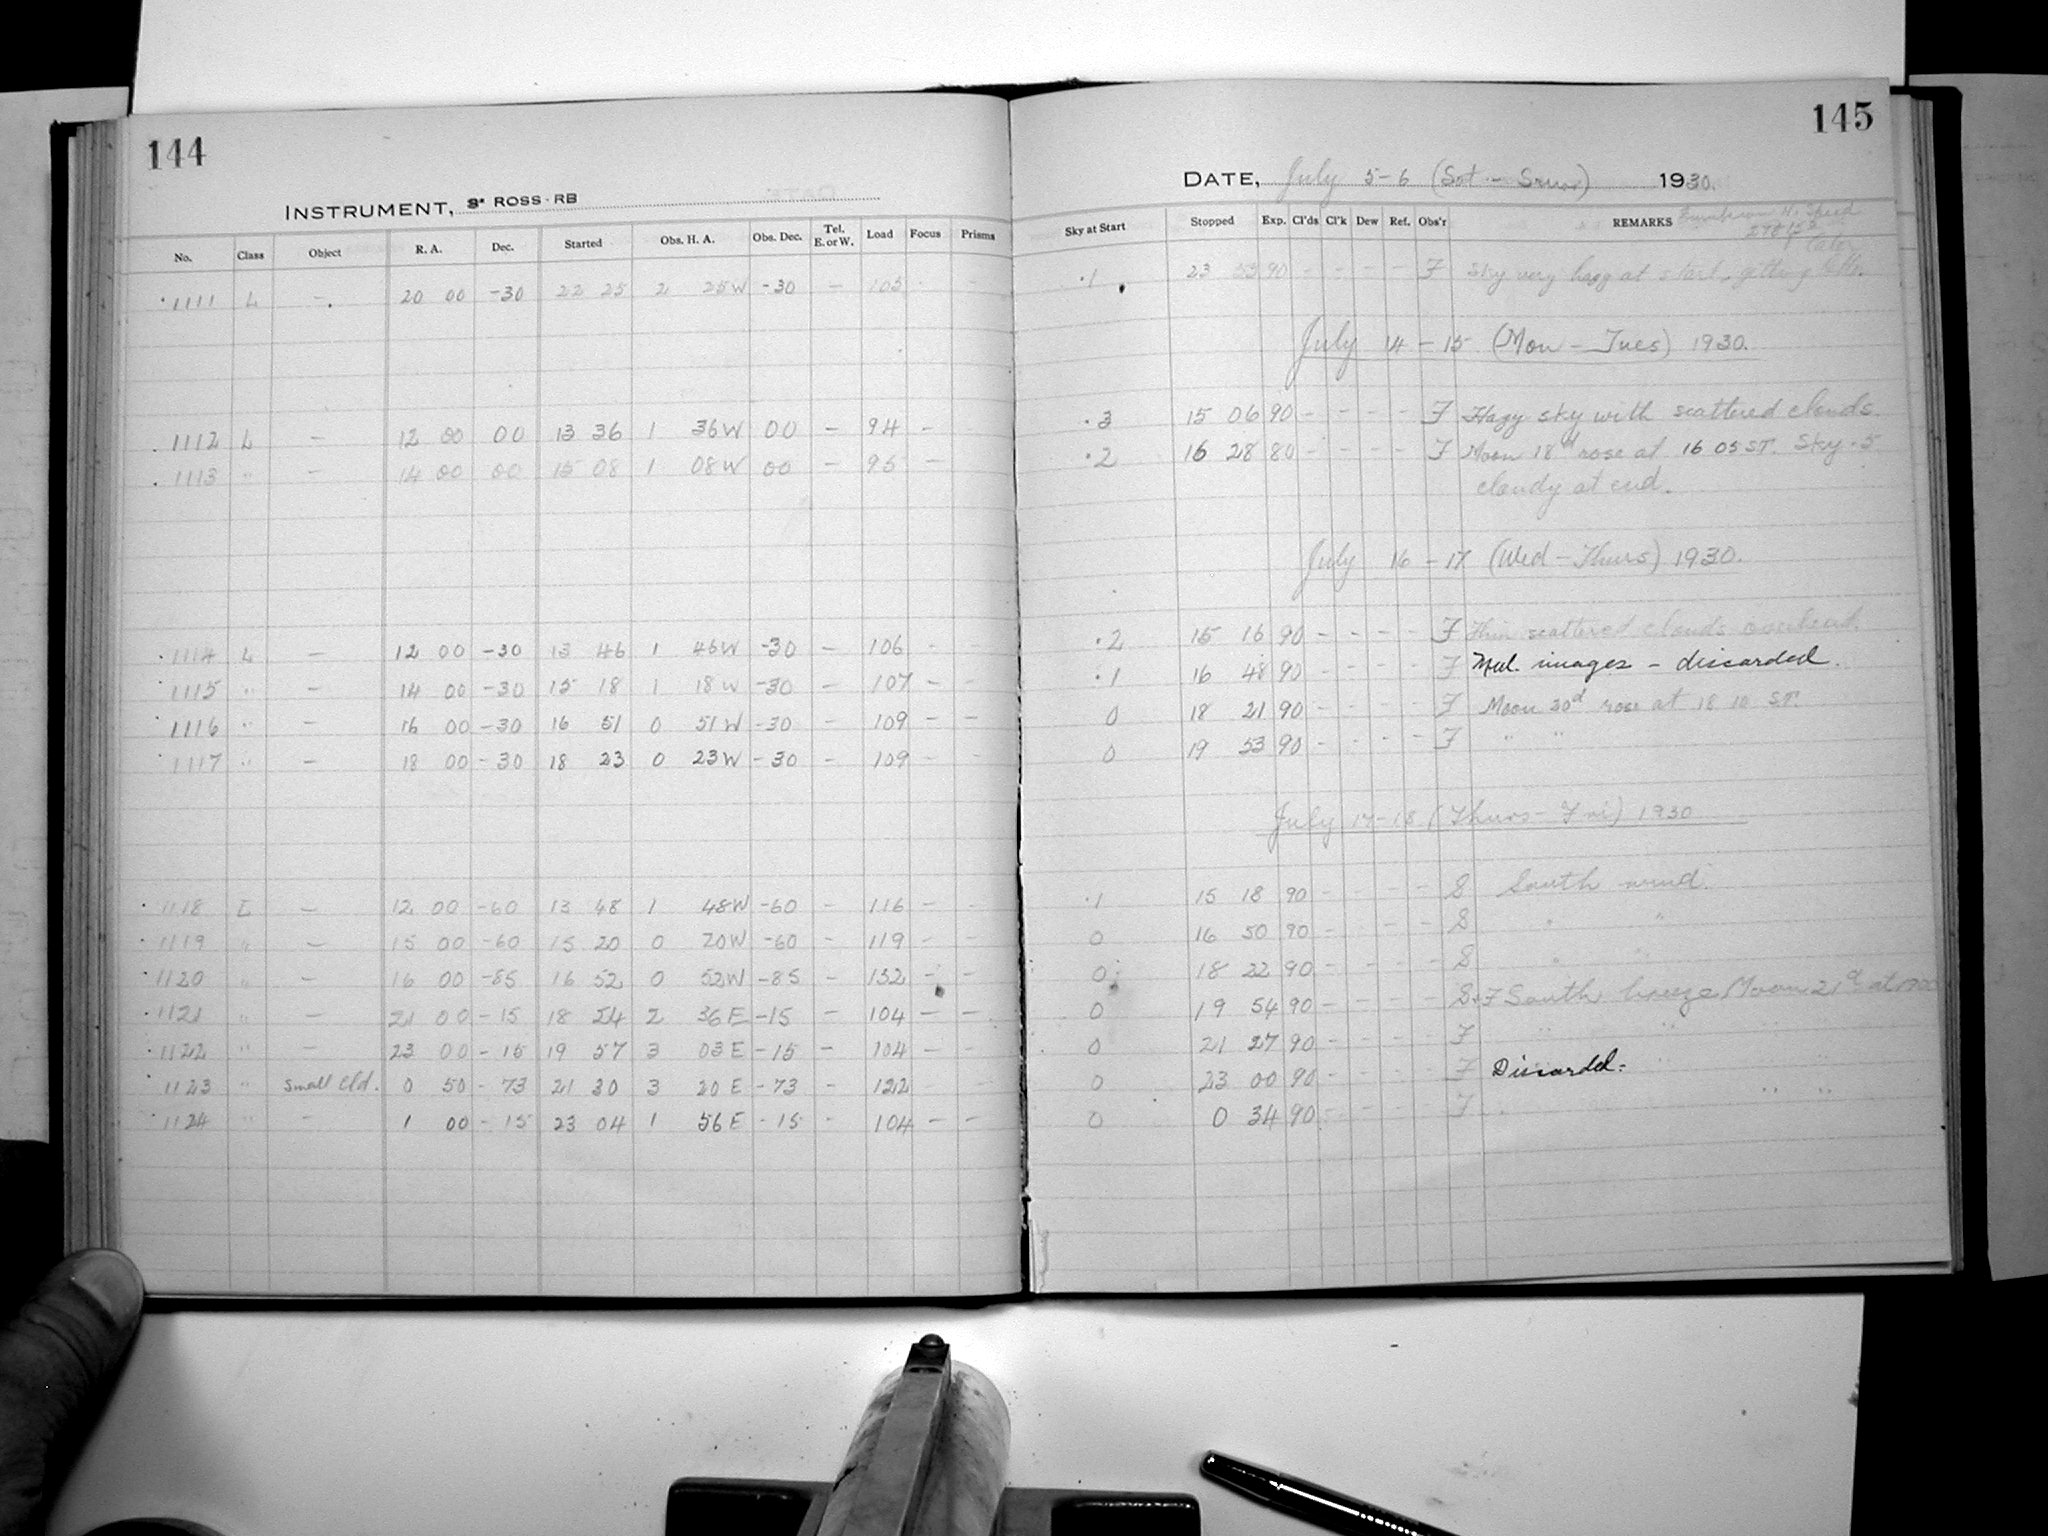 144
INSTRUMENT, 3" ROSS-RB
No. Class Object R. A. Dec. Started Obs. H. A. Obs. Dec. Tel. E. or W. Load Focus Prisms
1111 L - 20 00 -30 22 25 2 25W -30 - 105 - -
1112 L - 12 00 00 13 36 1 36W 00 - 94 -
1113 " - 14 00 00 15 08 1 08W 00 - 95 -
1114 L - 12 00 -30 13 46 1 46W -30 - 106 - -
1115 " - 14 00 -30 15 18 1 18W -30 - 107 - -
1116 " - 16 00 -30 16 51 0 51W -30 - 109 - -
1117 " - 18 00 -30 18 23 0 23W -30 - 109 - -
1118 L - 12 00 -60 13 48 1 48W -60 - 116 - -
1119 " - 15 00 -60 15 20 0 20W -60 - 119 - -
1120 " - 16 00 -85 16 52 0 52W -85 - 132 - -
1121 " - 21 00 -15 18 24 2 36E -15 - 104 - -
1122 " - 23 00 -15 19 57 3 03E -15 - 104 - -
1123 " Small Cld. 0 50 -73 21 30 3 20E -73 - 122
1124 " - 1 00 -15 23 04 1 56E -15 - 104 - -
145
DATE, July 5-6 (Sat - Sun) 1930.
Sky at Start Stopped Exp. Cl'ds Cl'k Dew Ref. Obs'r REMARKS
.1 23 55 90 - - - - F Sky very hazy at start, getting
July 14-15 (Mon-Tues) 1930.
.3 15 06 90 - - - - F Hazy sky with scattered clouds.
.2 16 28 80 - - - - F Moon 18d rose at 16 05 ST. Sky .5
cloudy at end.
July 16-17 (Wed-Thurs) 1930.
.2 15 16 90 - - - - F Thin scattered clouds overhead.
.1 16 48 90 - - - - F Mul. images - discarded.
0 18 21 90 - - - - F Moon 20d rose at 18 10 ST.
0 19 53 90 - - - - F " "
July 17-18 (Thurs-Fri) 1930
.1 15 18 90 - - - - S South wind.
0 16 50 90 - - - - S " "
0 18 22 90 - - - - S " "
0 19 54 90 - - - - S+F South breeze Moon 21d at
0 21 27 90 - - - - F " "
0 23 00 90 - - - - F Discarded.
0 0 34 90 - - - - F " "